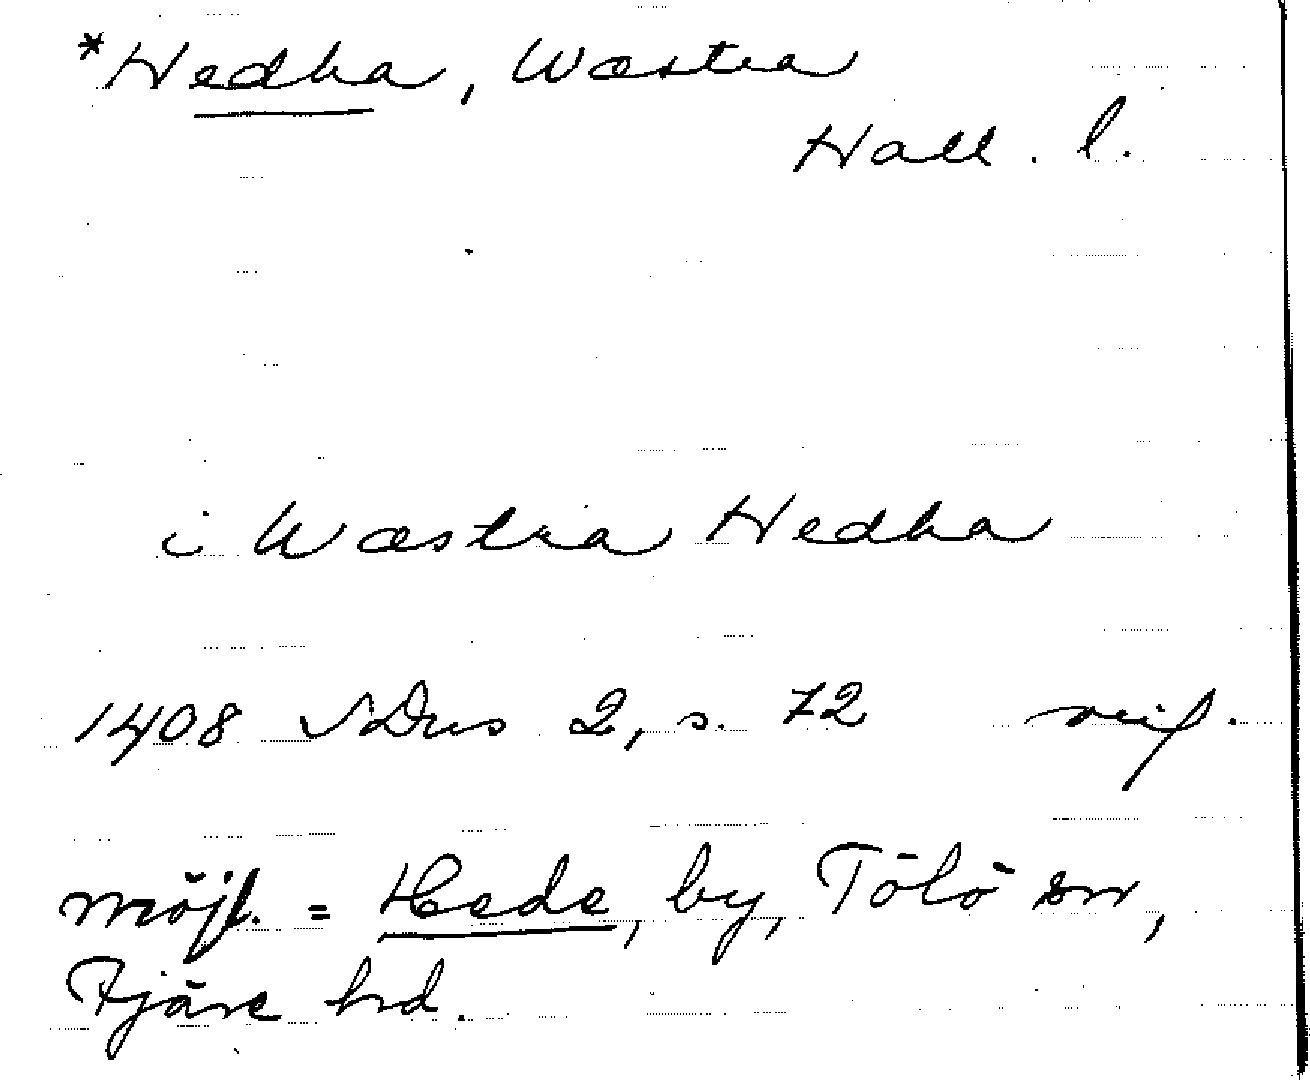 *Hedha, Wæstra
Hall. l.
i Wæstra Hedha
1408 SDns 2, s. 72
möjl. = Hede, by, Tölö sn,
Fjäre hd.